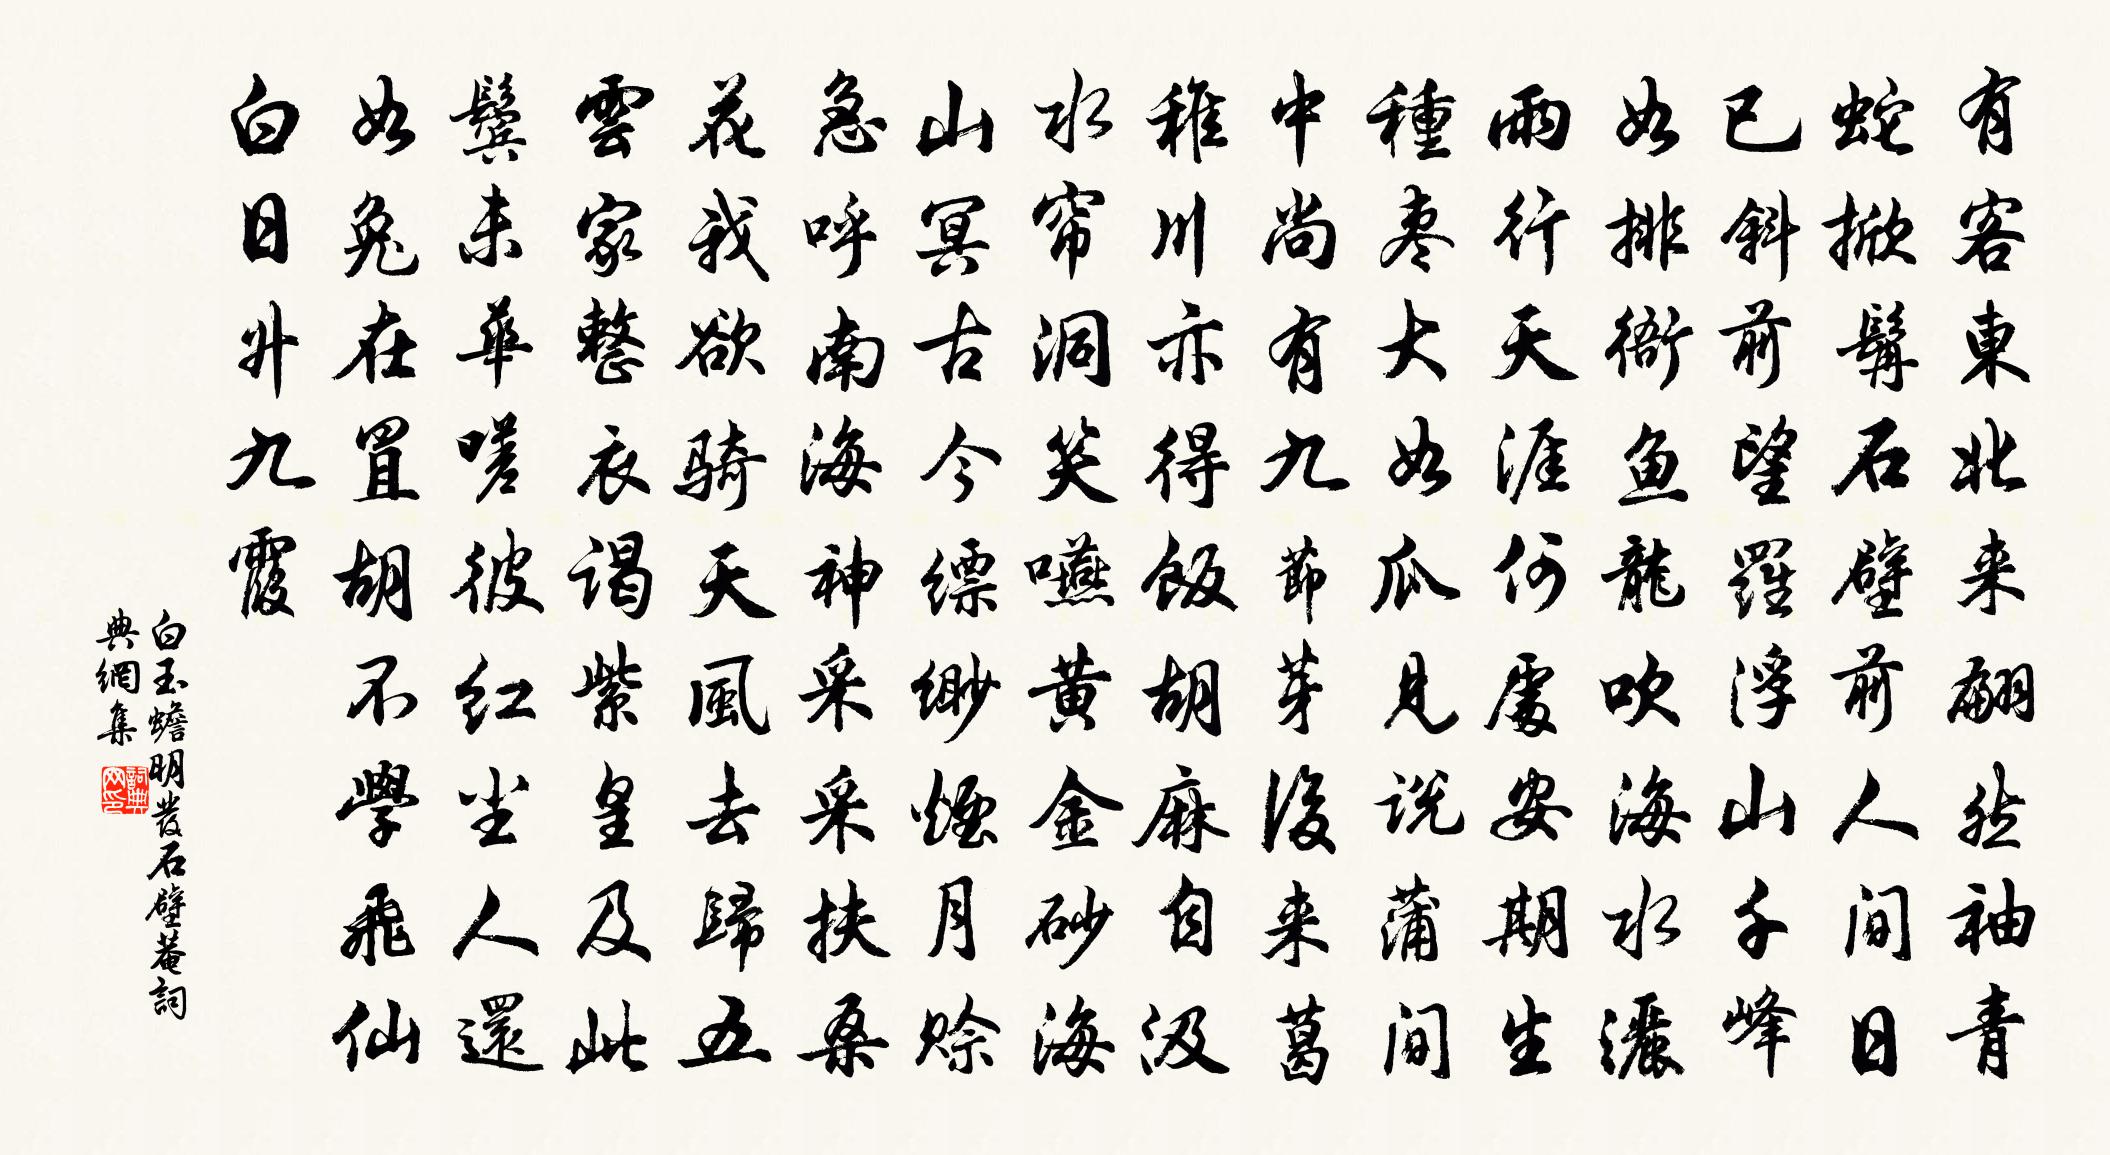 有客東北来翩然袖青
蛇掀髯石壁前人间日
已斜前望羅浮山千峰
如排衙鱼龍吹海水灑
雨行天涯何處安期生
種枣大如瓜見说蒲间
中尚有九節芽後来葛
稚川亦得飯胡麻自汲
水帘洞笑嚥黄金砂海
山冥古今缥缈煙月赊
急呼南海神采采扶桑
花我欲骑天風去歸五
雲家整衣谒紫皇及此
鬓未華嗟彼红尘人還
如兔在罝胡不學飛仙
白日升九霞
白玉蟾明發石壁菴詞
典網集
詞典网印